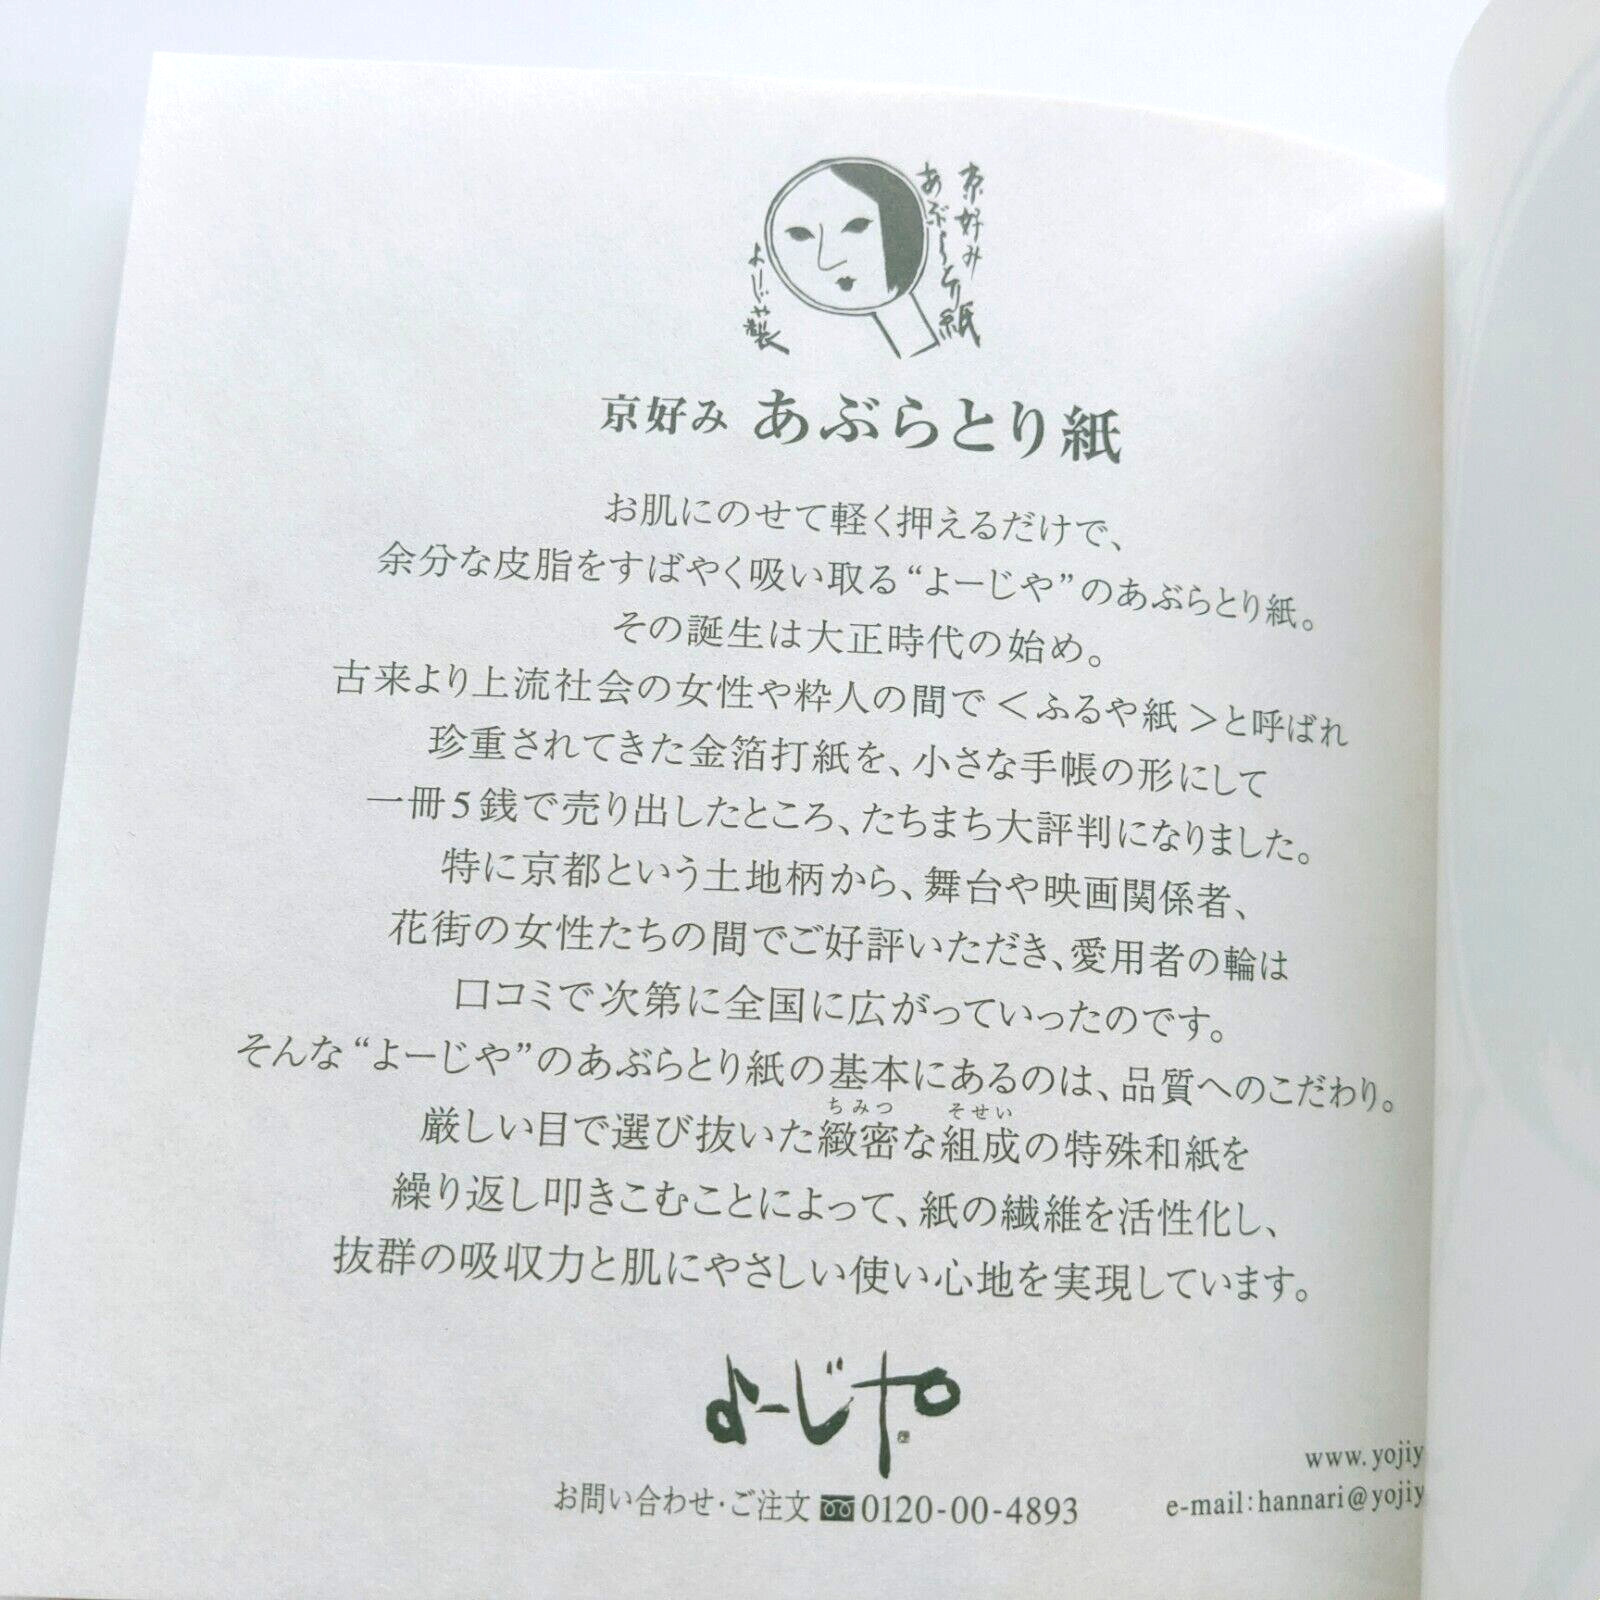 京好み
あぶらとり紙
よーじや製
京好み あぶらとり紙
お肌にのせて軽く押えるだけで、
余分な皮脂をすばやく吸い取る“よーじや”のあぶらとり紙。
その誕生は大正時代の始め。
古来より上流社会の女性や粋人の間で＜ふるや紙＞と呼ばれ
珍重されてきた金箔打紙を、小さな手帳の形にして
一冊5銭で売り出したところ、たちまち大評判になりました。
特に京都という土地柄から、舞台や映画関係者、
花街の女性たちの間でご好評いただき、愛用者の輪は
口コミで次第に全国に広がっていったのです。
そんな“よーじや”のあぶらとり紙の基本にあるのは、品質へのこだわり。
ちみつ そせい
厳しい目で選び抜いた緻密な組成の特殊和紙を
繰り返し叩きこむことによって、紙の繊維を活性化し、
抜群の吸収力と肌にやさしい使い心地を実現しています。
よーじや
お問い合わせ・ご注文 0120-00-4893
www.yojiy
e-mail:hannari@yojiy